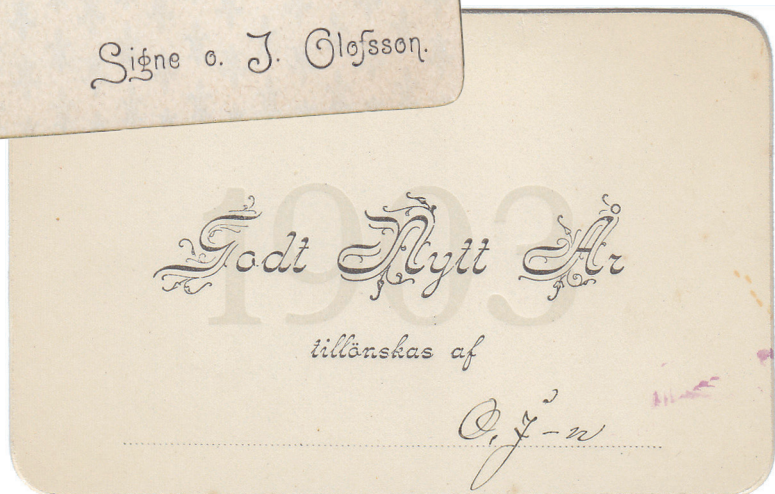 Signe o. J. Olofsson.
1903
Godt Nytt År
tillönskas af
O. J-n